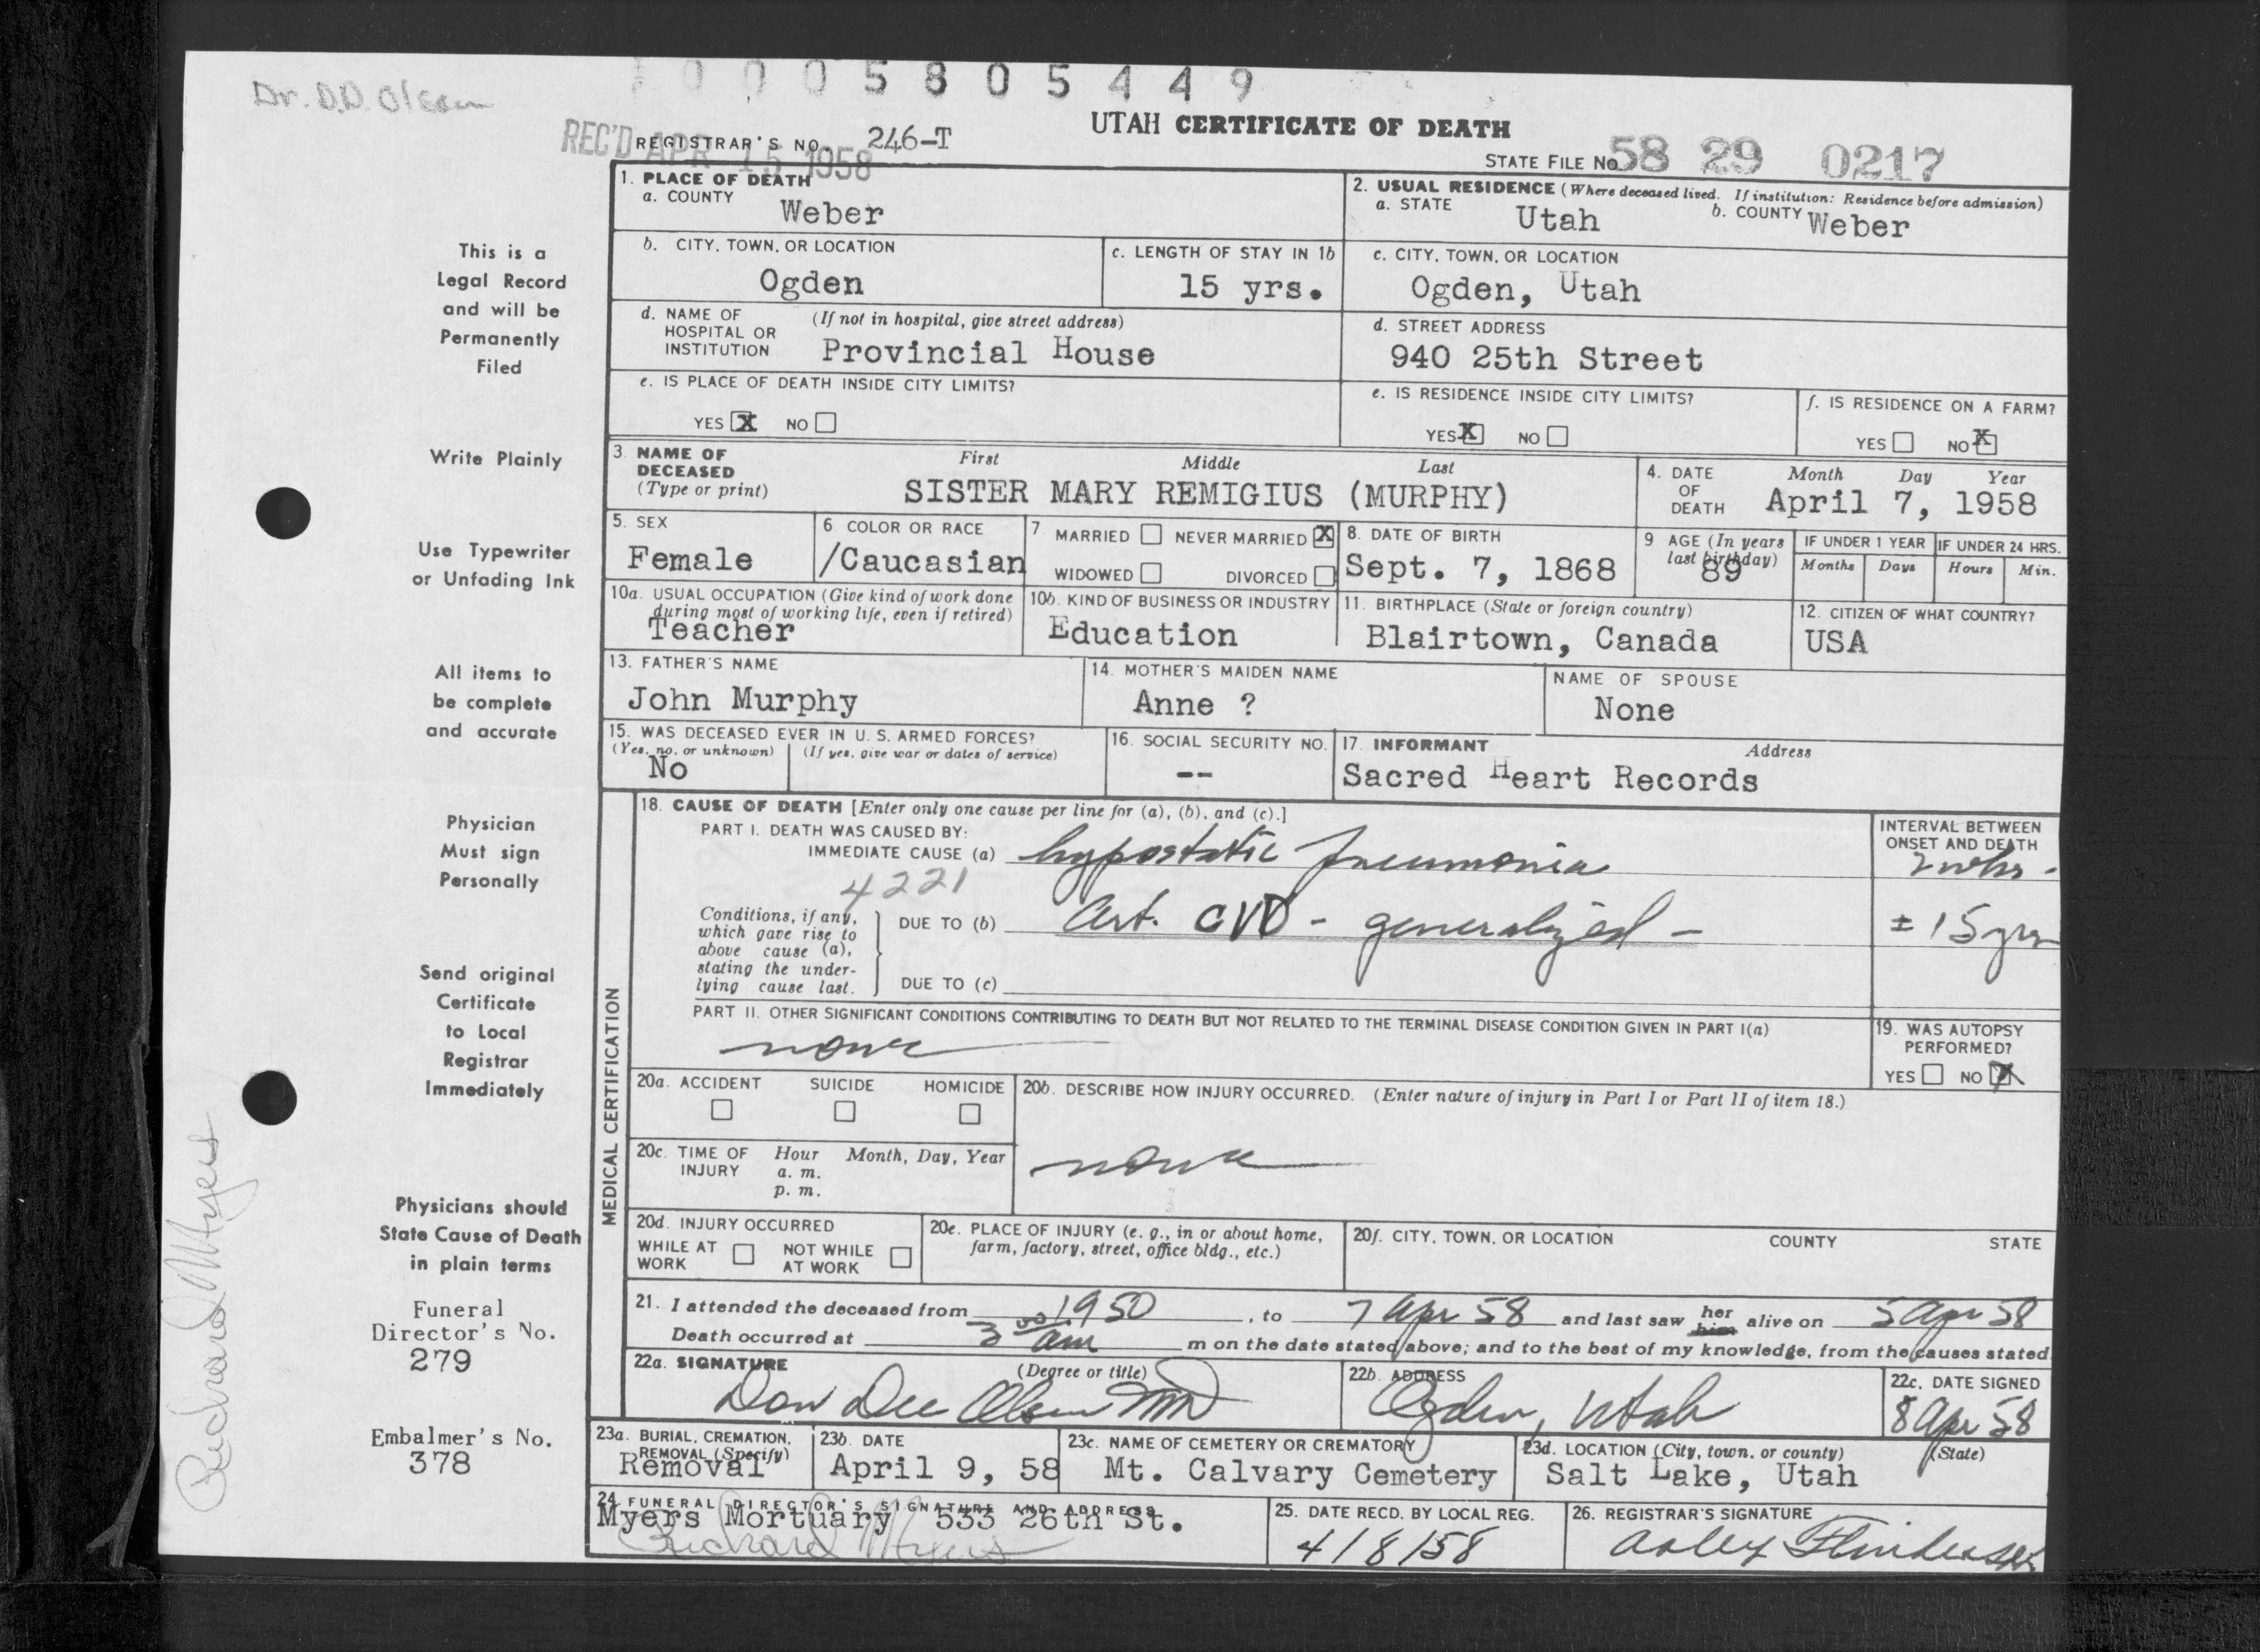 Dr. D.D. Olsen
1 0 0 0 5 8 0 5 4 4 9
UTAH CERTIFICATE OF DEATH
REC'D APR 15 1958
REGISTRAR'S NO. 246-T
STATE FILE No. 58 29 0217
1. PLACE OF DEATH
a. COUNTY
Weber
2. USUAL RESIDENCE (Where deceased lived. If institution: Residence before admission)
a. STATE Utah b. COUNTY Weber
b. CITY, TOWN, OR LOCATION
Ogden
c. LENGTH OF STAY IN 1b
15 yrs.
c. CITY, TOWN, OR LOCATION
Ogden, Utah
d. NAME OF HOSPITAL OR INSTITUTION (If not in hospital, give street address)
Provincial House
d. STREET ADDRESS
940 25th Street
e. IS PLACE OF DEATH INSIDE CITY LIMITS?
YES X NO
e. IS RESIDENCE INSIDE CITY LIMITS?
YES X NO
f. IS RESIDENCE ON A FARM?
YES NO X
3. NAME OF DECEASED (Type or print)
First Middle Last
SISTER MARY REMIGIUS (MURPHY)
4. DATE OF DEATH
Month Day Year
April 7, 1958
5. SEX
Female
6. COLOR OR RACE
/Caucasian
7 MARRIED NEVER MARRIED X
WIDOWED DIVORCED
8. DATE OF BIRTH
Sept. 7, 1868
9 AGE (In years last birthday)
89
IF UNDER 1 YEAR
Months Days
IF UNDER 24 HRS.
Hours Min.
10a. USUAL OCCUPATION (Give kind of work done during most of working life, even if retired)
Teacher
10b. KIND OF BUSINESS OR INDUSTRY
Education
11. BIRTHPLACE (State or foreign country)
Blairtown, Canada
12. CITIZEN OF WHAT COUNTRY?
USA
13. FATHER'S NAME
John Murphy
14. MOTHER'S MAIDEN NAME
Anne ?
NAME OF SPOUSE
None
15. WAS DECEASED EVER IN U. S. ARMED FORCES?
(Yes, no, or unknown) (If yes, give war or dates of service)
No
16. SOCIAL SECURITY NO.
--
17. INFORMANT Address
Sacred Heart Records
MEDICAL CERTIFICATION
18. CAUSE OF DEATH [Enter only one cause per line for (a), (b), and (c).]
PART I. DEATH WAS CAUSED BY:
IMMEDIATE CAUSE (a) hypostatic pneumonia
4221
INTERVAL BETWEEN ONSET AND DEATH
2 wks.
Conditions, if any, which gave rise to above cause (a), stating the underlying cause last.
DUE TO (b) Art. CVD - generalized -
± 15 yrs
DUE TO (c)
PART II. OTHER SIGNIFICANT CONDITIONS CONTRIBUTING TO DEATH BUT NOT RELATED TO THE TERMINAL DISEASE CONDITION GIVEN IN PART I(a)
none
19. WAS AUTOPSY PERFORMED?
YES NO X
20a. ACCIDENT SUICIDE HOMICIDE
20b. DESCRIBE HOW INJURY OCCURRED. (Enter nature of injury in Part I or Part II of item 18.)
none
20c. TIME OF INJURY Hour Month, Day, Year
a. m.
p. m.
20d. INJURY OCCURRED
WHILE AT WORK NOT WHILE AT WORK
20e. PLACE OF INJURY (e. g., in or about home, farm, factory, street, office bldg., etc.)
20f. CITY, TOWN, OR LOCATION COUNTY STATE
21. I attended the deceased from 1950, to 7 Apr 58 and last saw her him alive on 5 Apr 58
Death occurred at 3 00 am m on the date stated above; and to the best of my knowledge, from the causes stated
22a. SIGNATURE (Degree or title)
Don Dee Olsen MD
22b. ADDRESS
Ogden, Utah
22c. DATE SIGNED
8 Apr 58
23a. BURIAL, CREMATION, REMOVAL (Specify)
Removal
23b. DATE
April 9, 58
23c. NAME OF CEMETERY OR CREMATORY
Mt. Calvary Cemetery
23d. LOCATION (City, town, or county) (State)
Salt Lake, Utah
24 FUNERAL DIRECTOR'S SIGNATURE AND ADDRESS
Myers Mortuary 533 26th St.
Richard Myers
25. DATE RECD. BY LOCAL REG.
4/8/58
26. REGISTRAR'S SIGNATURE
This is a
Legal Record
and will be
Permanently
Filed
Write Plainly
Use Typewriter
or Unfading Ink
All items to
be complete
and accurate
Physician
Must sign
Personally
Send original
Certificate
to Local
Registrar
Immediately
Physicians should
State Cause of Death
in plain terms
Funeral
Director's No.
279
Embalmer's No.
378
Richard Myers